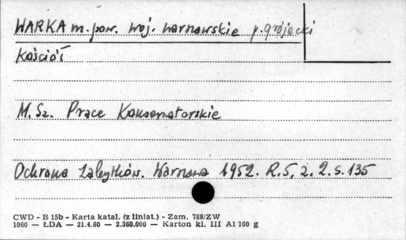 WARKA m. pow. woj. warszawskie p. grójecki
Kościół
M. Sz. Prace Konserwatorskie
Ochrona Zabytków. Warszawa 1952. R. 5, z. 2. s. 135
CWD - B 15b - Karta katal. (z liniat.) - Zam. 788/ZW
1060 — ŁDA — 21.4.60 — 2.360.000 — Karton kl. III A1 160 g